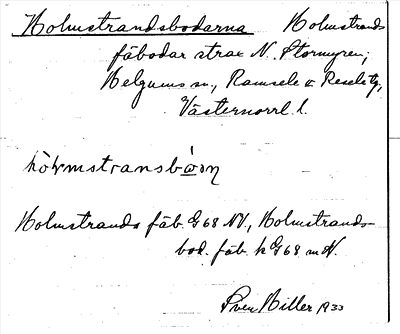 Holmstrandsbodarna Holmstrands
fäbodar strax N. Stormyren;
Helgums sn, Ramsele & Resele tg,
Västernorrl. l.
Holmstrands fäb. G68 NV., Holmstrands-
bod. fäb. k G68 m N.
Sven Hiller 1933